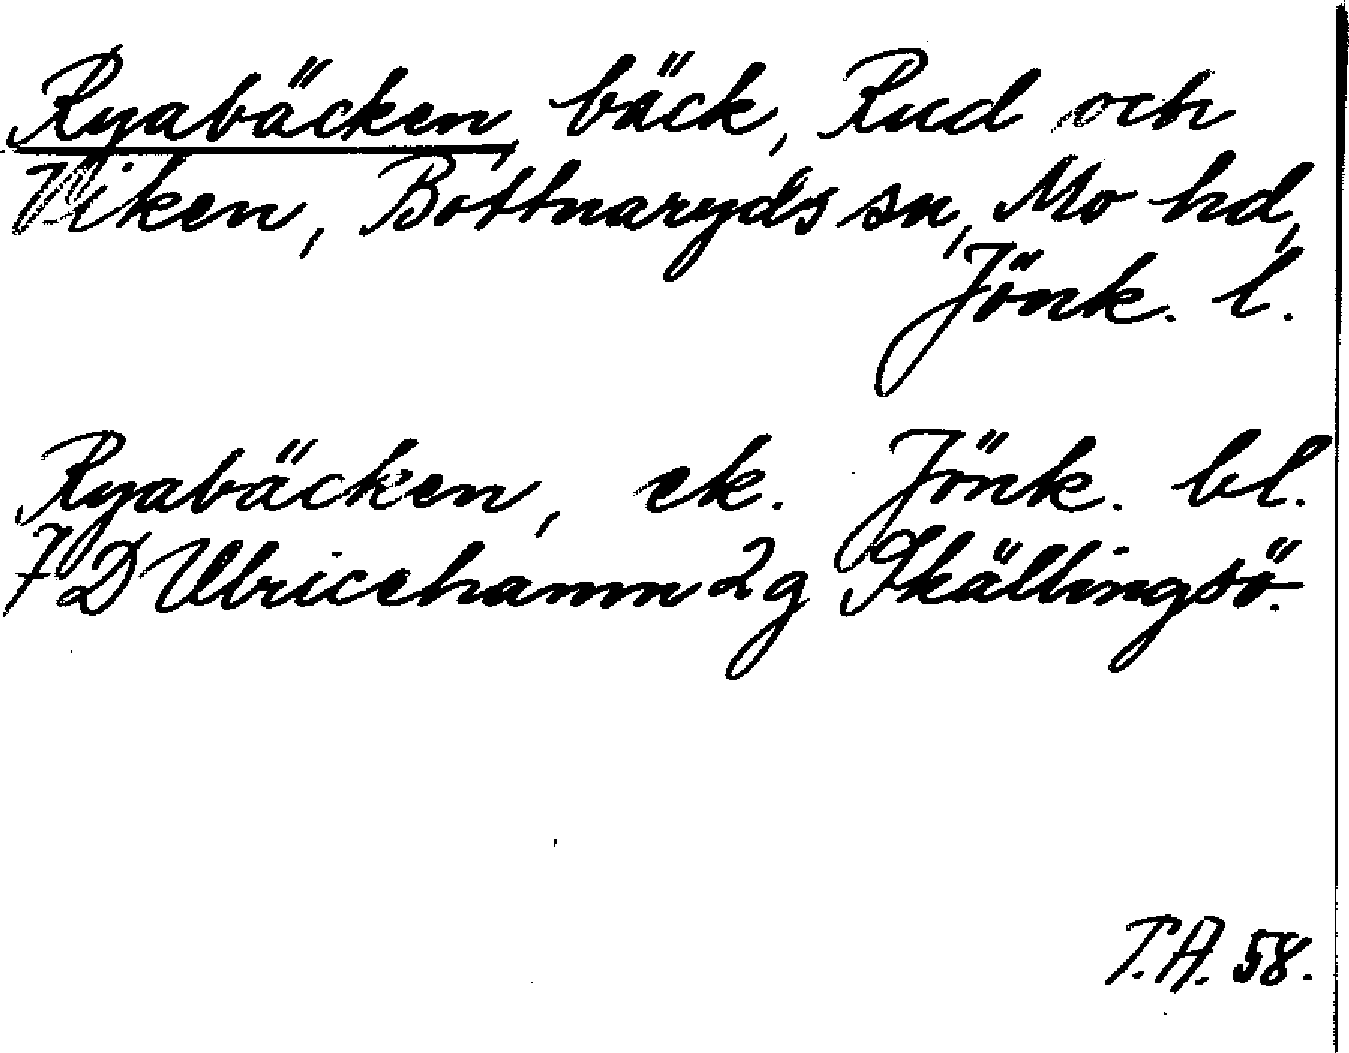 Ryabäcken, bäck, Rud och
Viken, Bottnaryds sn, Mo hd,
Jönk. l.
Ryabäcken, ek. Jönk. bl.
7 D Ulricehamn 2 g Skällingsö.
T.A. 58.